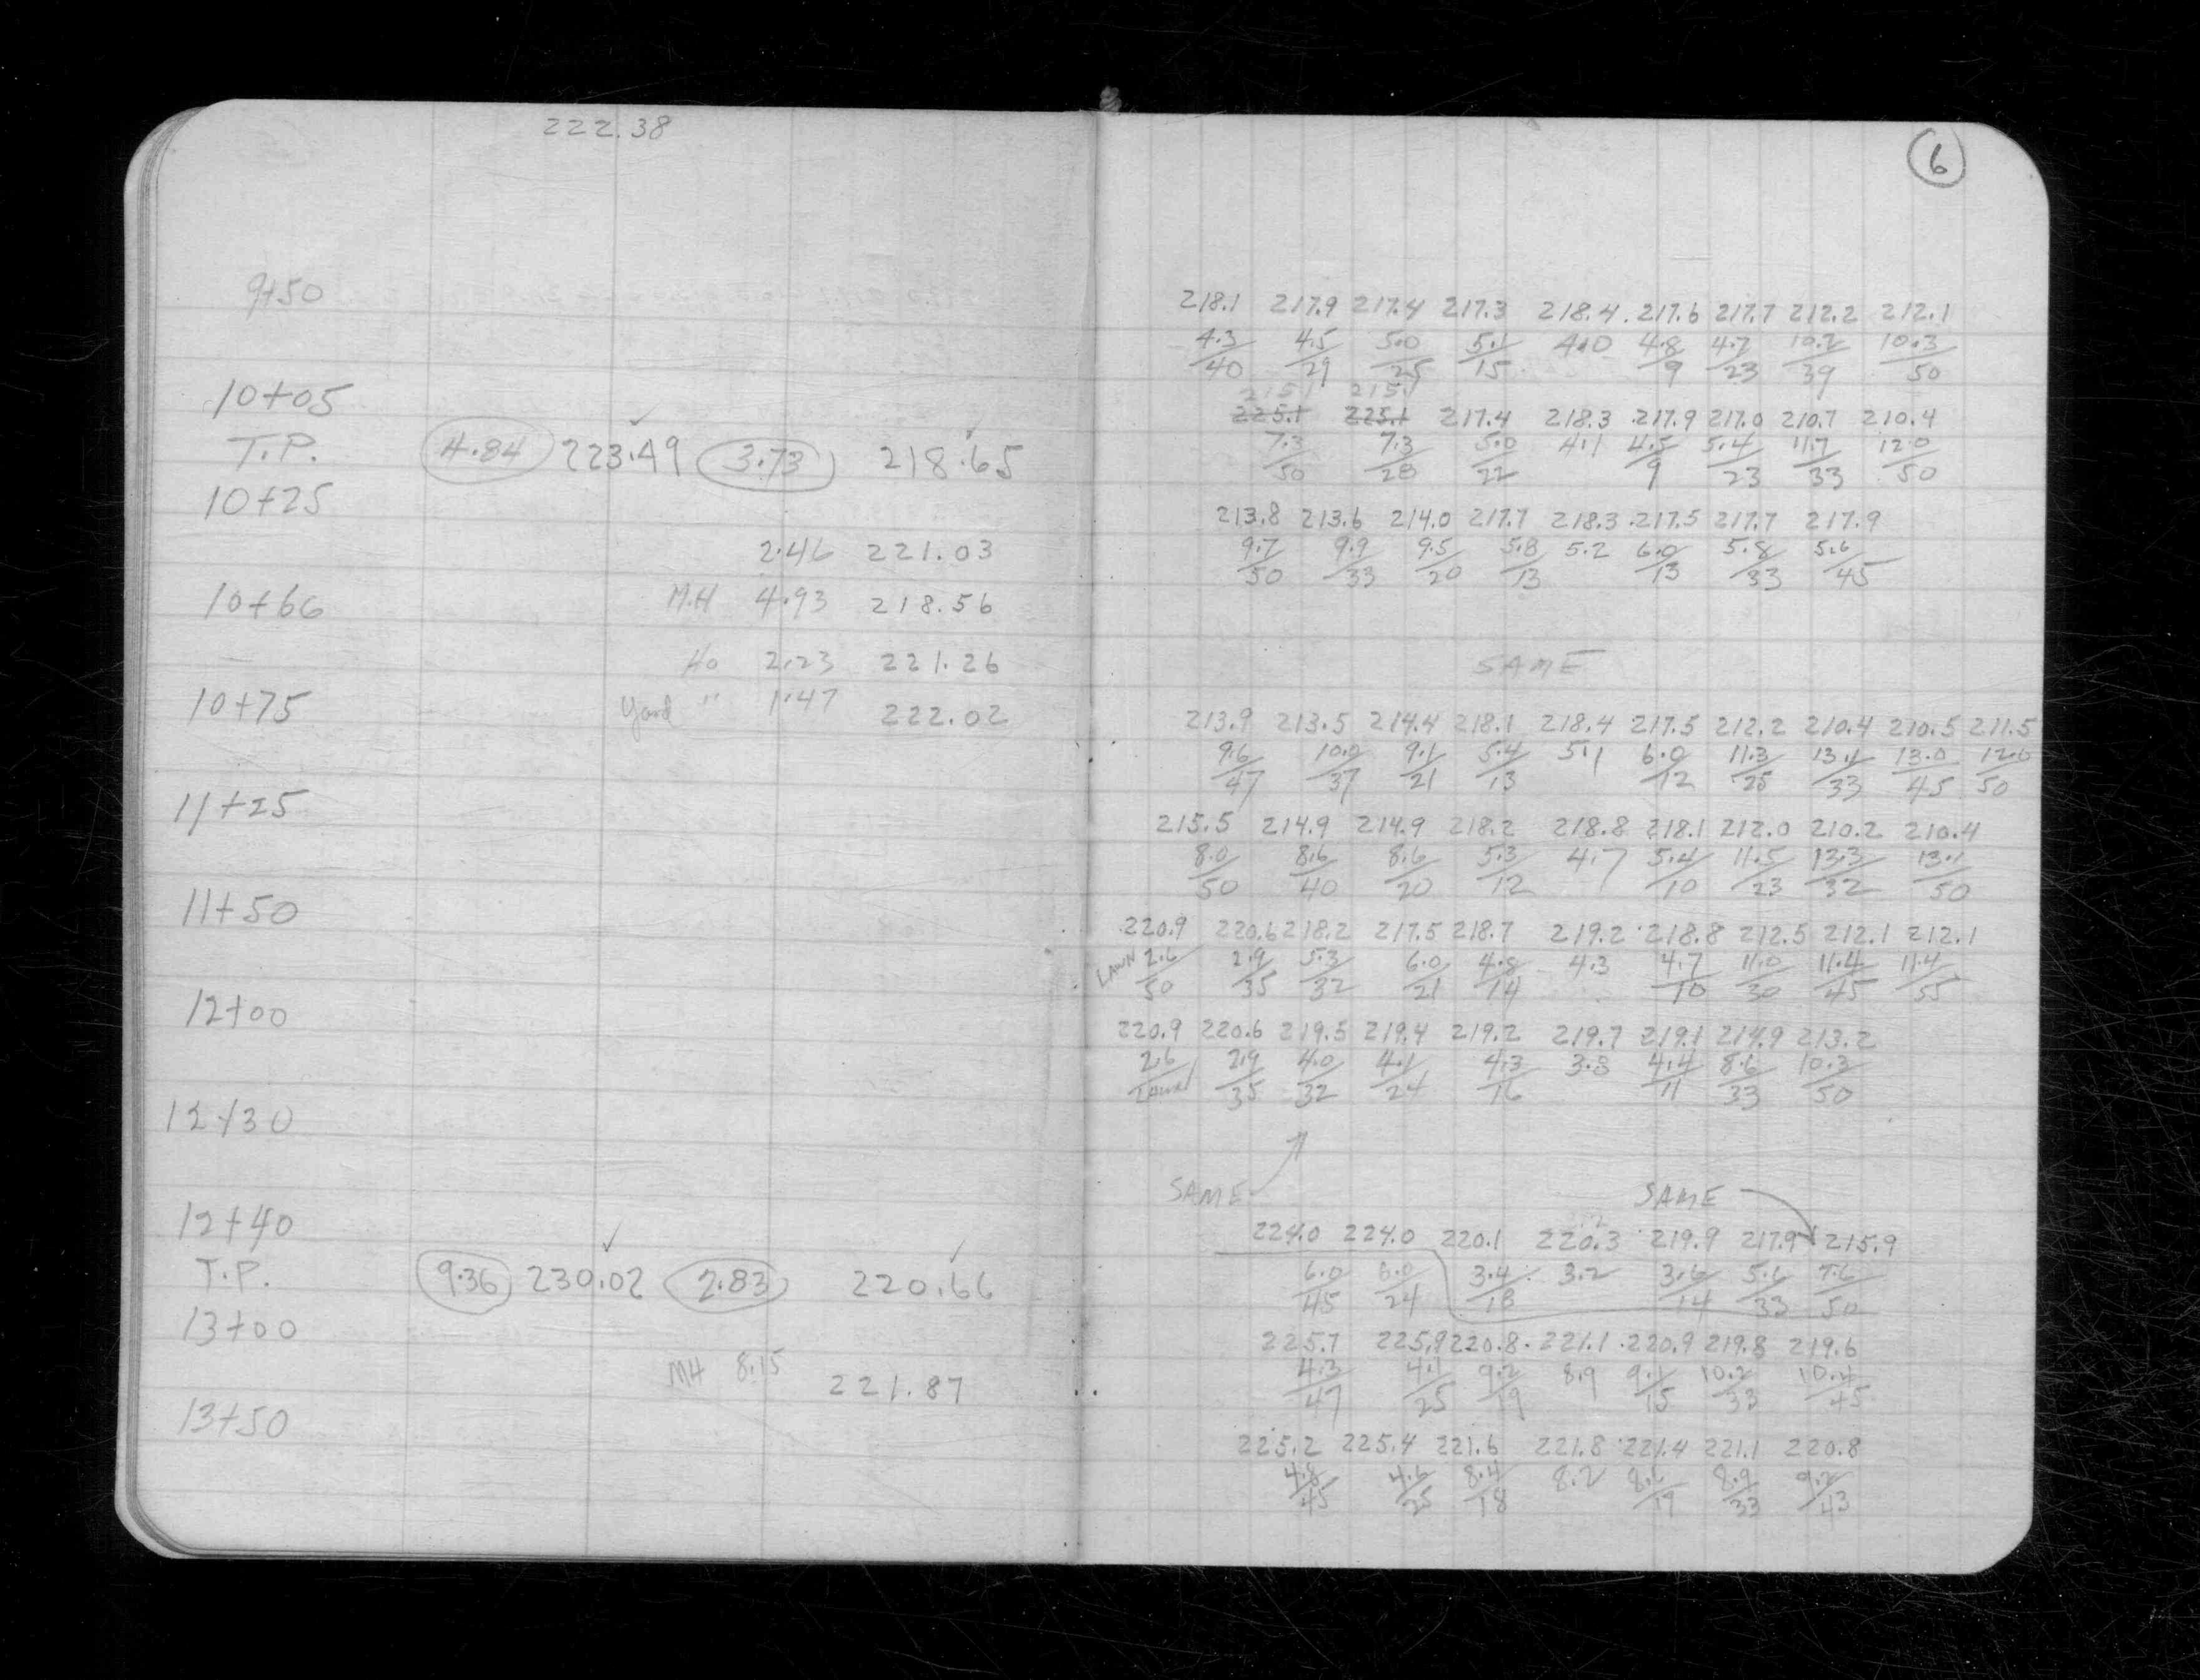 222.38
6
9+50
218.1 217.9 217.4 217.3 218.4 217.6 217.7 212.2 212.1
4.3/40 4.5/29 5.0/25 5.1/15 4.0 4.8/9 4.7/23 10.2/39 10.3/50
215.1 215.1
10+05
225.1 225.1 217.4 218.3 217.9 217.0 210.7 210.4
T.P. 4.84 223.49 3.73 218.65
7.3/50 7.3/28 5.0/22 4.1 4.5/9 5.4/23 11.7/33 12.0/50
10+25
213.8 213.6 214.0 217.7 218.3 217.5 217.7 217.9
2.46 221.03
9.7/50 9.9/33 9.5/20 5.8/13 5.2 6.0/13 5.8/33 5.6/45
10+66 M.H 4.93 218.56
Ho 2.23 221.26
SAME
10+75 Yard " 1.47 222.02
213.9 213.5 214.4 218.1 218.4 217.5 212.2 210.4 210.5 211.5
9.6/47 10.0/37 9.1/21 5.4/13 5.1 6.0/12 11.3/25 13.1/33 13.0/45 12.0/50
11+25
215.5 214.9 214.9 218.2 218.8 218.1 212.0 210.2 210.4
8.0/50 8.6/40 8.6/20 5.3/12 4.7 5.4/10 11.5/23 13.3/32 13.1/50
11+50
220.9 220.6 218.2 217.5 218.7 219.2 218.8 212.5 212.1 212.1
LAWN 2.6/50 2.9/35 5.3/32 6.0/21 4.8/14 4.3 4.7/10 11.0/30 11.4/45 11.4/55
12+00
220.9 220.6 219.5 219.4 219.2 219.7 219.1 214.9 213.2
2.6/LAWN 2.9/35 4.0/32 4.1/24 4.3/16 3.8 4.4/11 8.6/33 10.3/50
12+30
SAME SAME
12+40
224.0 224.0 220.1 220.3 219.9 217.9 215.9
T.P. 9.36 230.02 2.83 220.66
6.0/45 6.0/24 3.4/18 3.2 3.6/14 5.6/33 7.6/50
13+00
225.7 225.9 220.8 221.1 220.9 219.8 219.6
MH 8.15 221.87
4.3/47 4.1/25 9.2/19 8.9 9.1/15 10.2/33 10.4/45
13+50
225.2 225.4 221.6 221.8 221.4 221.1 220.8
4.8/45 4.6/25 8.4/18 8.2 8.6/19 8.9/33 9.2/43